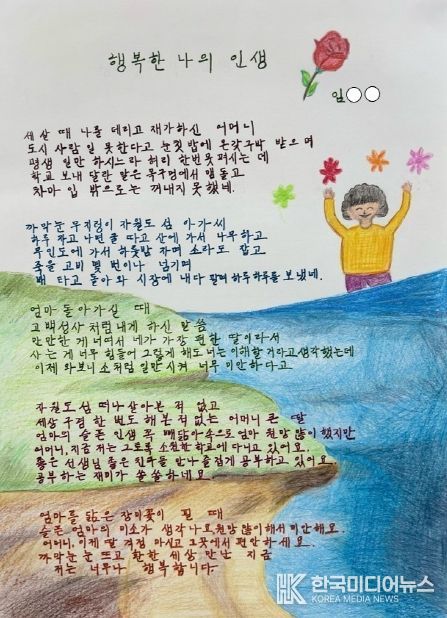 행복한 나의 인생
임○○
세살 때 나를 데리고 재가하신 어머니
도시 사람 일 못한다고 눈칫밥에 온갖 구박 받으며
평생 일만 하시느라 허리 한번 못 펴시는데
학교 보내 달란 말은 목구멍에서 맴돌고
차마 입 밖으로는 꺼내지 못했네.
까막눈 무지렁이 자월도 섬 아가씨
하루 자고 나면 굴 따고 산에 가서 나무하고
무인도에 가서 하룻밤 자며 소라도 잡고
죽을 고비 몇 번이나 넘기며
배 타고 돌아와 시장에 내다 팔며 하루하루를 보냈네.
엄마 돌아가실 때
고백성사처럼 내게 하신 말씀
만만한 게 너여서 네가 가장 편한 딸이라서
사는 게 너무 힘들어 그렇게 해도 너는 이해할 거라고 생각했는데
이제 와보니 소처럼 일만 시켜 너무 미안하다고
자월도 섬 떠나 살아본 적 없고
세상 구경 한 번도 해본 적 없는 어머니 큰 딸
엄마의 슬픈 인생 꼭 빼닮아 속으로 엄마 원망 많이 했지만
어머니, 지금 저는 그토록 소원한 학교에 다니고 있어요.
좋은 선생님 좋은 친구를 만나 즐겁게 공부하고 있어요.
공부하는 재미가 쏠쏠하네요.
엄마를 닮은 장미꽃이 필 때
슬픈 엄마의 미소가 생각나요 원망 많이 해서 미안해요.
어머니, 이제 딸 걱정 마시고 그곳에서 편안하세요.
까막눈 뜨고 환한 세상 만난 지금
저는 너무나 행복합니다.
한국미디어뉴스
KOREA MEDIA NEWS